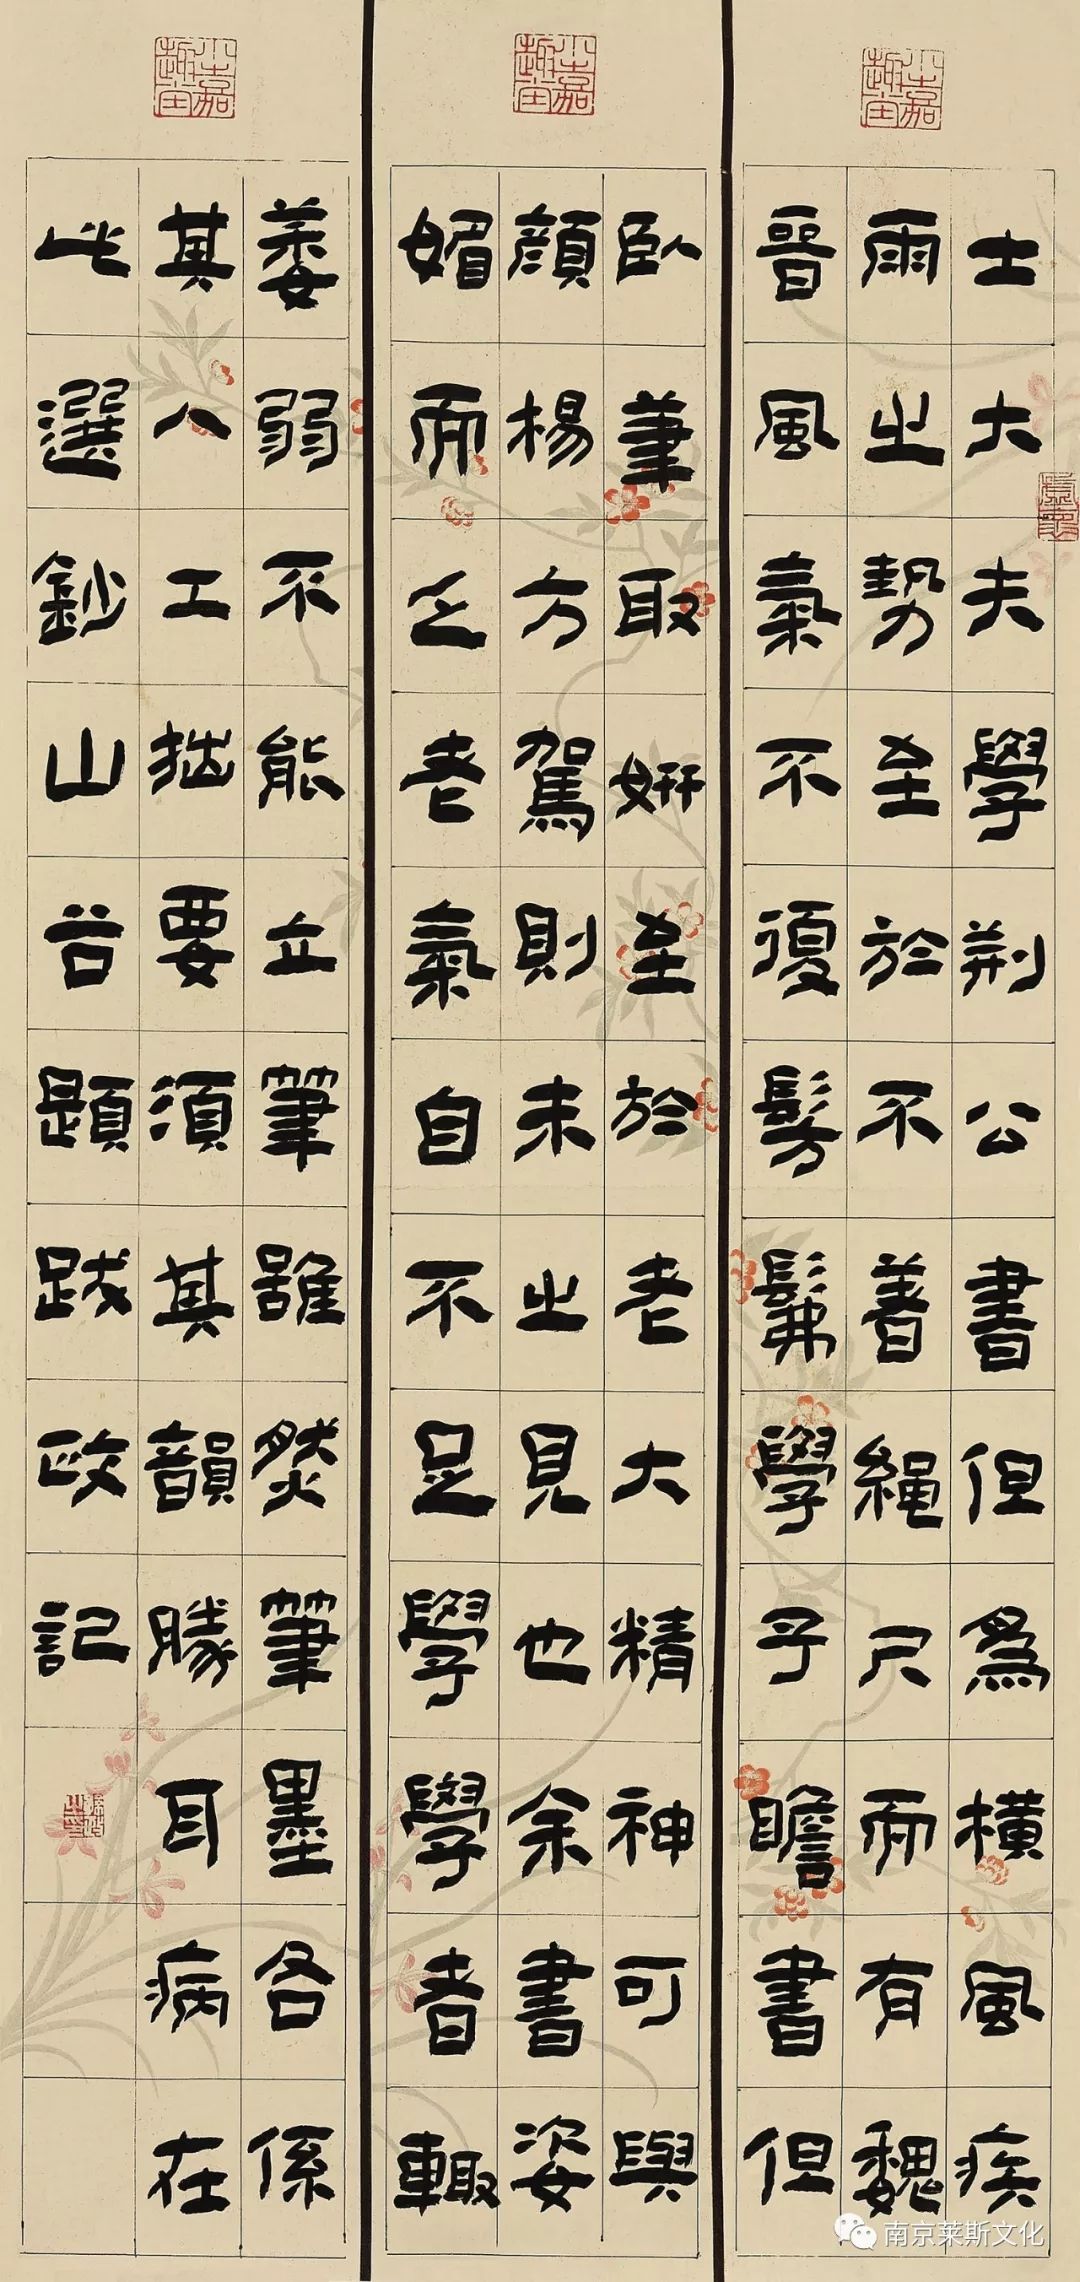 士大夫學荆公書但爲橫風疾
雨之勢至於不著繩尺而有魏
晉風氣不復髣髴學子瞻書但
臥筆取妍至於老大精神可與
顏楊方駕則未之見也余書姿
媚而乏老氣自不足學學者輒
萎弱不能立筆雖然筆墨各係
其人工拙要須其韻勝耳病在
此選鈔山谷題跋政記
南京莱斯文化